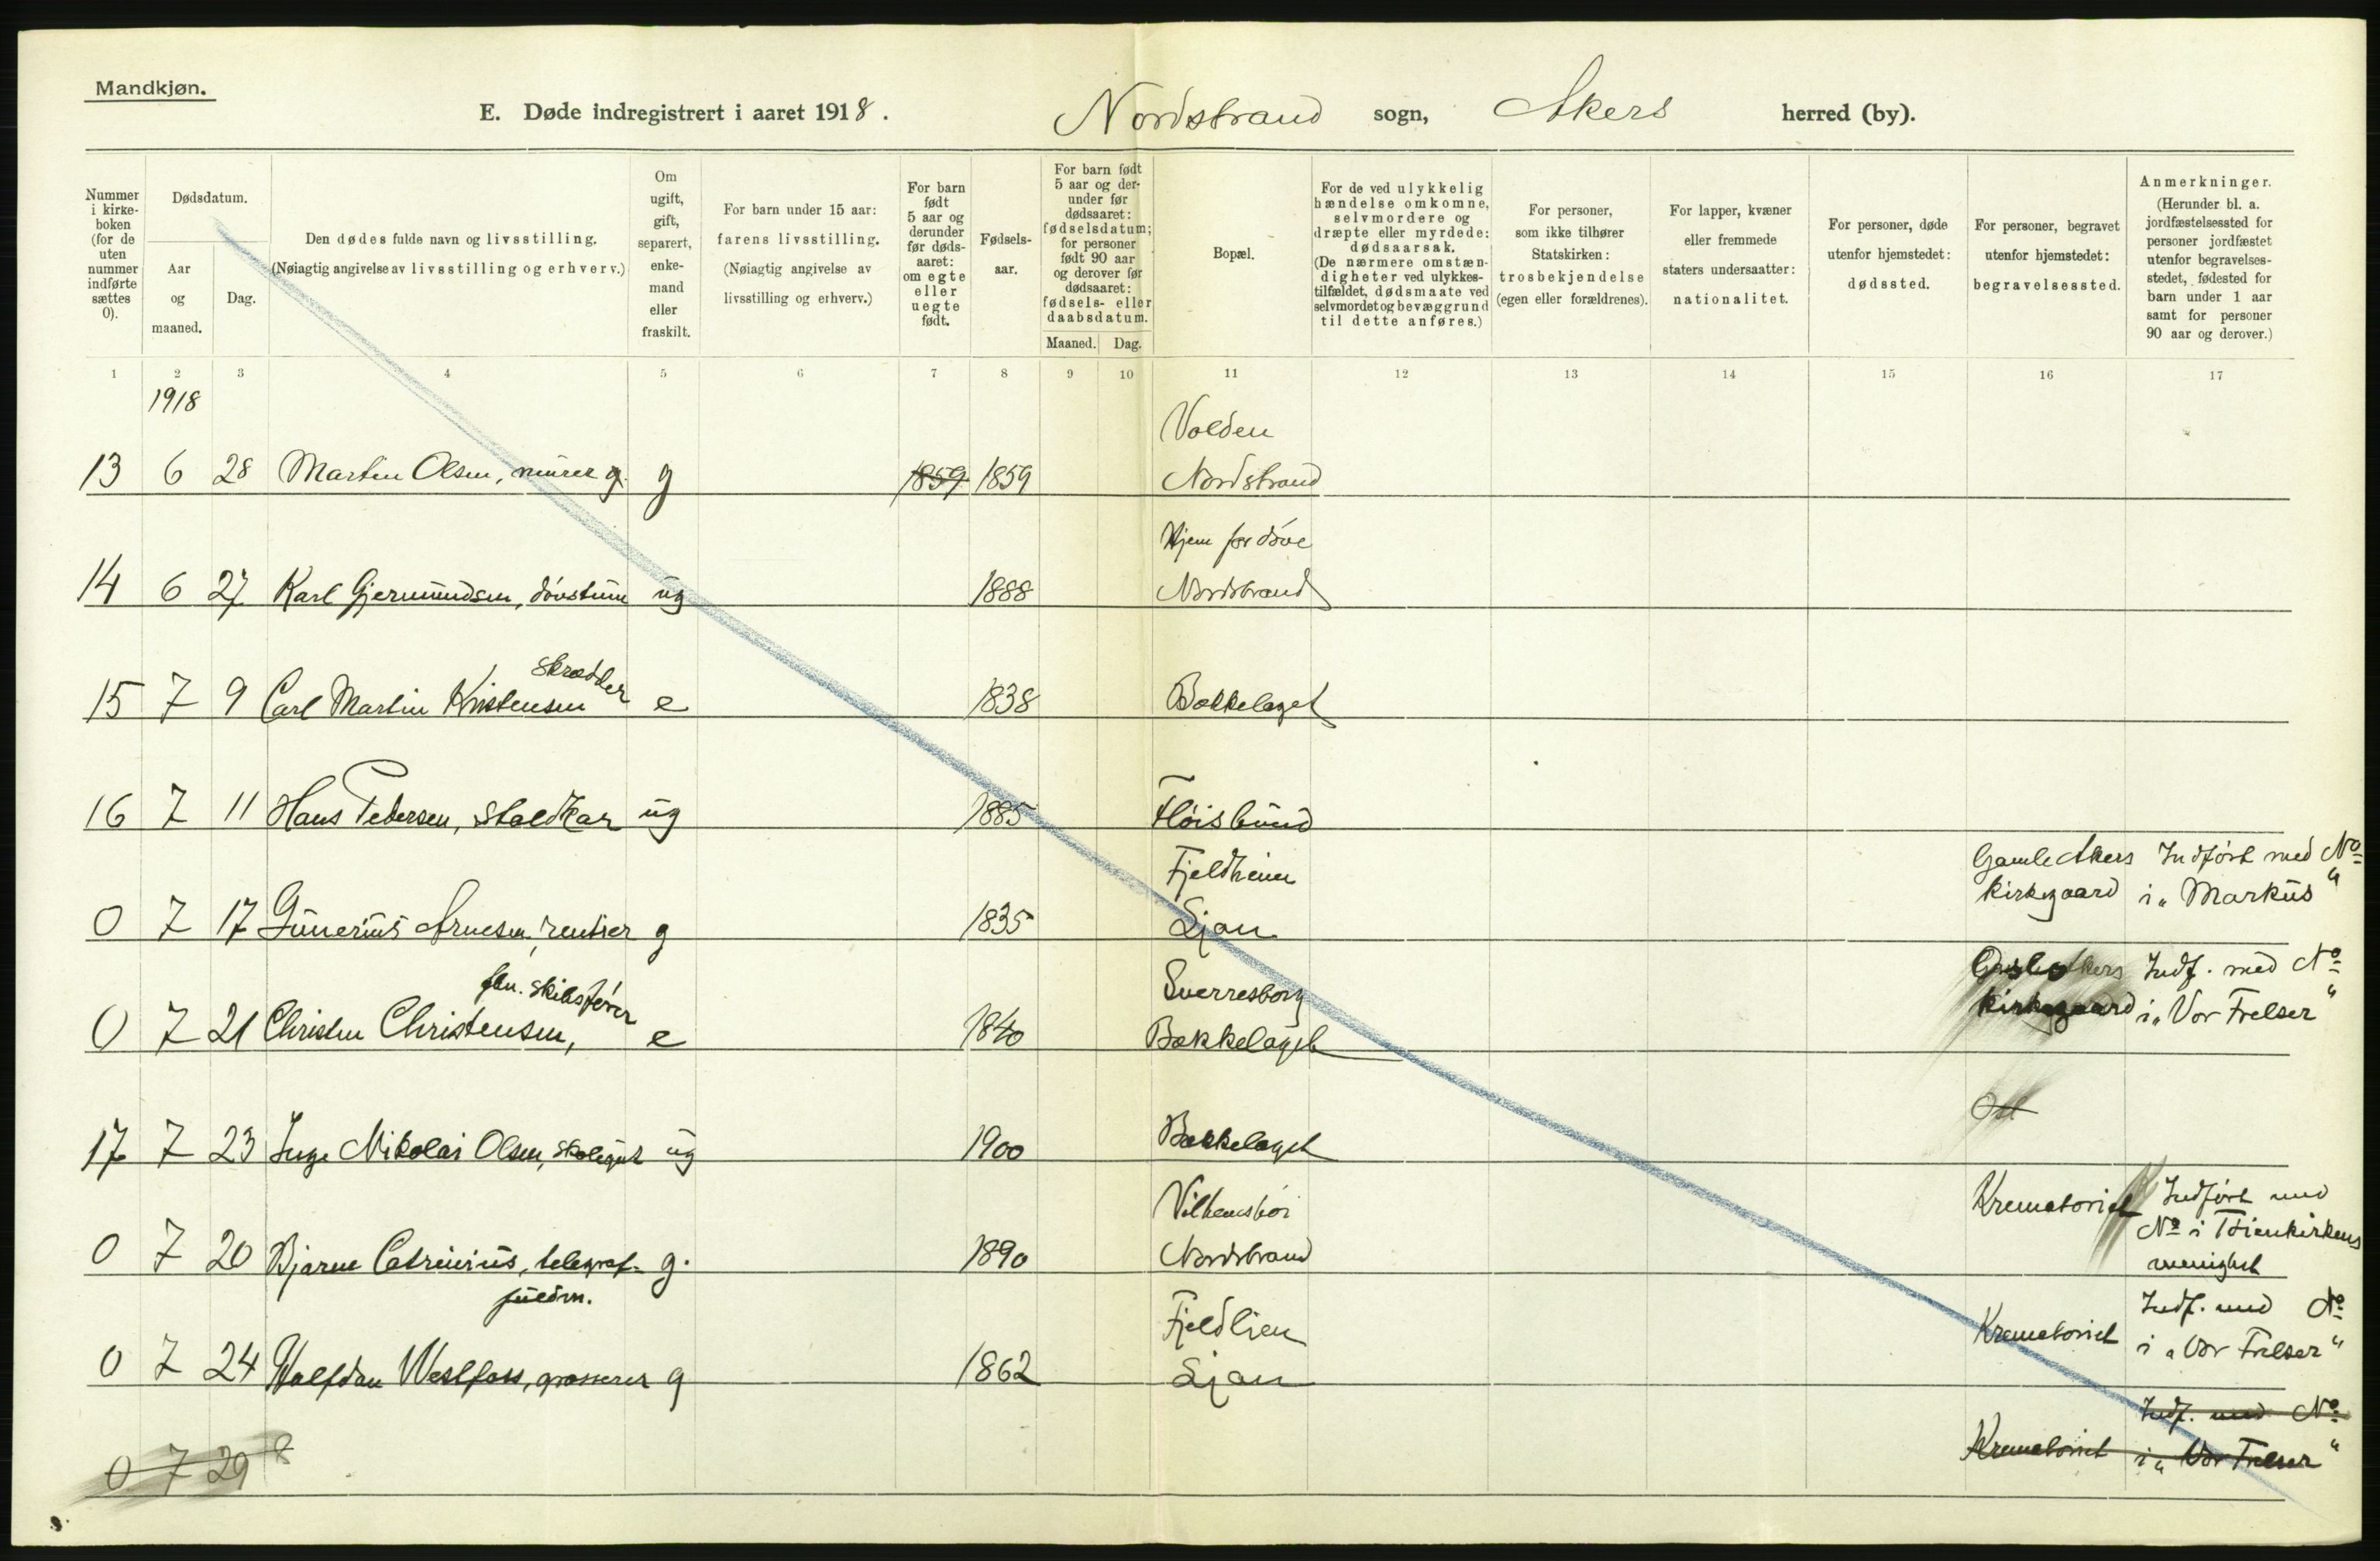 Mandkjøn.
E. Døde indregistrert i aaret 1918. Nordstrand sogn, Akers herred (by).
Nummer i kirke- boken (for de uten nummer indførte sættes 0).
Dødsdatum.
Aar og maaned.
Dag.
Den dødes fulde navn og livsstilling.
(Nøiagtig angivelse av livsstilling og erhverv.)
Om ugift, gift, separert, enke- mand eller fraskilt.
For barn under 15 aar: farens livsstilling. (Nøiagtig angivelse av livsstilling og erhverv.)
For barn født 5 aar og derunder før døds- aaret: om egte eller uegte født.
Fødsels- aar.
For barn født 5 aar og der- under før dødsaaret: fødselsdatum; for personer født 90 aar og derover før dødsaaret: fødsels- eller daabsdatum.
Maaned. Dag.
Bopæl.
For de ved ulykkelig hændelse omkomne, selvmordere og dræpte eller myrdede: dødsaarsak. (De nærmere omstæn- digheter ved ulykkes- tilfældet, dødsmaate ved selvmordet og bevæggrund til dette anføres.)
For personer, som ikke tilhører Statskirken: trosbekjendelse (egen eller forældrenes).
For lapper, kvæner eller fremmede staters undersaatter: nationalitet.
For personer, døde utenfor hjemstedet: dødssted.
For personer, begravet utenfor hjemstedet: begravelsessted.
Anmerkninger. (Herunder bl. a. jordfæstelsessted for personer jordfæstet utenfor begravelses- stedet, fødested for barn under 1 aar samt for personer 90 aar og derover.)
1 2 3 4 5 6 7 8 9 10 11 12 13 14 15 16 17
1918
Volden
13 6 28 Martin Olsen, murer g. g 1859 1859 Nordstrand
Hjem for døve
14 6 27 Karl Gjermundsen, døvstum ug 1888 Nordstrand
skrædder
15 7 9 Carl Martin Kristensen e 1838 Bækkelaget
16 7 11 Hans Pedersen, staldkar ug 1885 Fløisbund
Fjeldheim Gamle Akers Indført med No
kirkegaard i „Markus“
0 7 17 Gunerius Arnesen, rentier g 1835 Ljan
fhv. skibsfører Sverresborg Akers Indf. med No
kirkegaard i „Vor Frelser“
0 7 21 Christen Christensen, e 1840 Bækkelaget
17 7 23 Inge Nikolai Olsen, skolegut ug 1900 Bækkelaget
Krematoriet Indført med
No i Frikirkens
menighet
0 7 20 Bjarne telegraf- g. 1890 Nordstrand
Fjeldlien Indf. med No
Krematoriet i „Vor Frelser“
0 7 24 Halfdan Westfoss, grosserer g 1862 Ljan
Indf. med No
0 7 29 Krematoriet i „Vor Frelser“